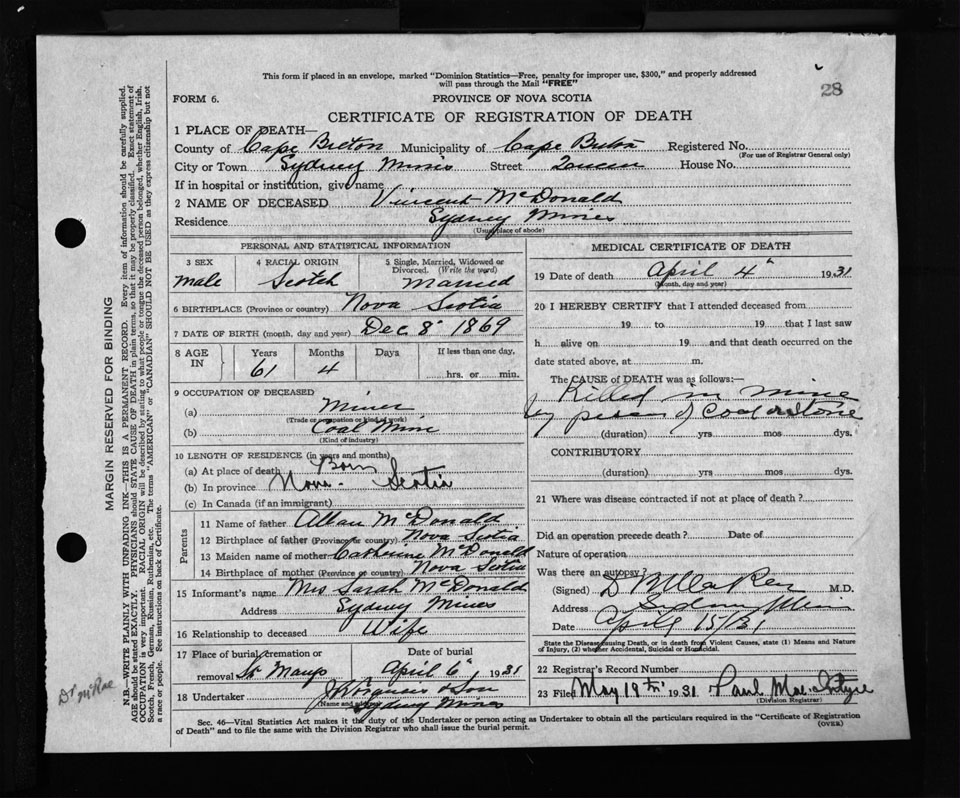 This form if placed in an envelope, marked "Dominion Statistics—Free, penalty for improper use, $300," and properly addressed
will pass through the Mail "FREE"
28
FORM 6.
PROVINCE OF NOVA SCOTIA
CERTIFICATE OF REGISTRATION OF DEATH
1 PLACE OF DEATH—
County of Cape Breton Municipality of Cape Breton Registered No.
(For use of Registrar General only)
City or Town Sydney Mines Street Queen House No.
If in hospital or institution, give name
2 NAME OF DECEASED Vincent McDonald
Residence Sydney Mines
(Usual place of abode)
PERSONAL AND STATISTICAL INFORMATION
3 SEX 4 RACIAL ORIGIN 5 Single, Married, Widowed or
Divorced. (Write the word)
male Scotch Married
6 BIRTHPLACE (Province or country) Nova Scotia
7 DATE OF BIRTH (month, day and year) Dec 8" 1869
8 AGE IN Years Months Days If less than one day,
61 4 hrs. or min.
9 OCCUPATION OF DECEASED
(a) Miner
(Trade or occupation or kind of work)
(b) Coal Mine
(Kind of industry)
10 LENGTH OF RESIDENCE (in years and months)
(a) At place of death Born
(b) In province Nova Scotia
(c) In Canada (if an immigrant)
Parents
11 Name of father Allan McDonald
12 Birthplace of father (Province or country) Nova Scotia
13 Maiden name of mother Catherine McDonald
14 Birthplace of mother (Province or country) Nova Scotia
15 Informant's name Mrs Sarah McDonald
Address Sydney Mines
16 Relationship to deceased Wife
17 Place of burial, cremation or Date of burial
removal St Marys April 6" 1931
18 Undertaker & Son
(Name and address) Sydney Mines
MEDICAL CERTIFICATE OF DEATH
19 Date of death April 4" 1931
(Month, day and year)
20 I HEREBY CERTIFY that I attended deceased from
19 to 19 that I last saw
h alive on 19 and that death occurred on the
date stated above, at m.
The CAUSE OF DEATH was as follows:—
Killed in mine
by of Coal or stone
(duration) yrs mos dys.
CONTRIBUTORY
(duration) yrs mos dys.
21 Where was disease contracted if not at place of death?
Did an operation precede death? Date of
Nature of operation
Was there an autopsy?
(Signed) M.D.
Address Sydney Mines
Date April 15/31
State the Disease causing Death, or in death from Violent Causes, state (1) Means and Nature
of Injury, (2) whether Accidental, Suicidal or Homicidal.
22 Registrar's Record Number
23 Filed May 19th 1931 Paul MacIntyre
(Division Registrar)
Sec. 46—Vital Statistics Act makes it the duty of the Undertaker or person acting as Undertaker to obtain all the particulars required in the "Certificate of Registration
of Death" and to file the same with the Division Registrar who shall issue the burial permit.
(OVER)
MARGIN RESERVED FOR BINDING
N.B.—WRITE PLAINLY WITH UNFADING INK—THIS IS A PERMANENT RECORD. Every item of information should be carefully supplied.
AGE should be stated EXACTLY. PHYSICIANS should STATE CAUSE OF DEATH in plain terms, so that it may be properly classified. Exact statement of
OCCUPATION is very important. RACIAL ORIGIN will be described by stating to what people or tongue the deceased person belonged, whether English, Irish,
Scotch, French, German, Russian, Ruthenian, etc. The terms "AMERICAN" or "CANADIAN" SHOULD NOT BE USED as they express citizenship but not
a race or people. See instructions on back of Certificate.
Dr McRae